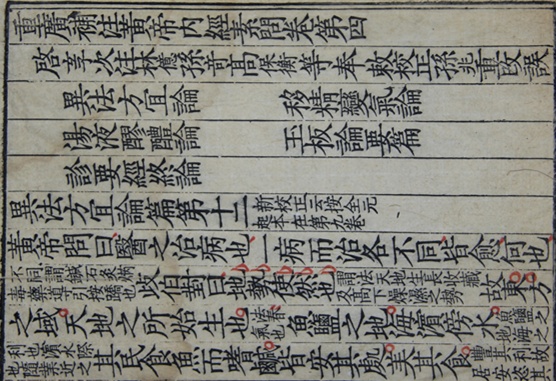 重廣補注黃帝內經素問卷第四
啓玄次注林億孫奇高保衡等奉敕校正孫兆重改誤
異法方宜論 移精變氣論
湯液醪醴論 玉板論要篇
診要經終論
異法方宜論篇第十二 新校正云按全元起本在第九卷
黃帝問曰醫之治病也一病而治各不同皆愈何也
不同謂鍼石灸焫毒藥導引按蹻也 歧伯對曰地勢使然也 謂法天地生長收藏及高下燥濕之勢 故東方
之域天地之所始生也 法春氣也 魚鹽之地海濱傍水 魚鹽之地海之
利也濱水際也隨業近之 其民食魚而嗜鹹皆安其處美其食 豐其利故居安恣其